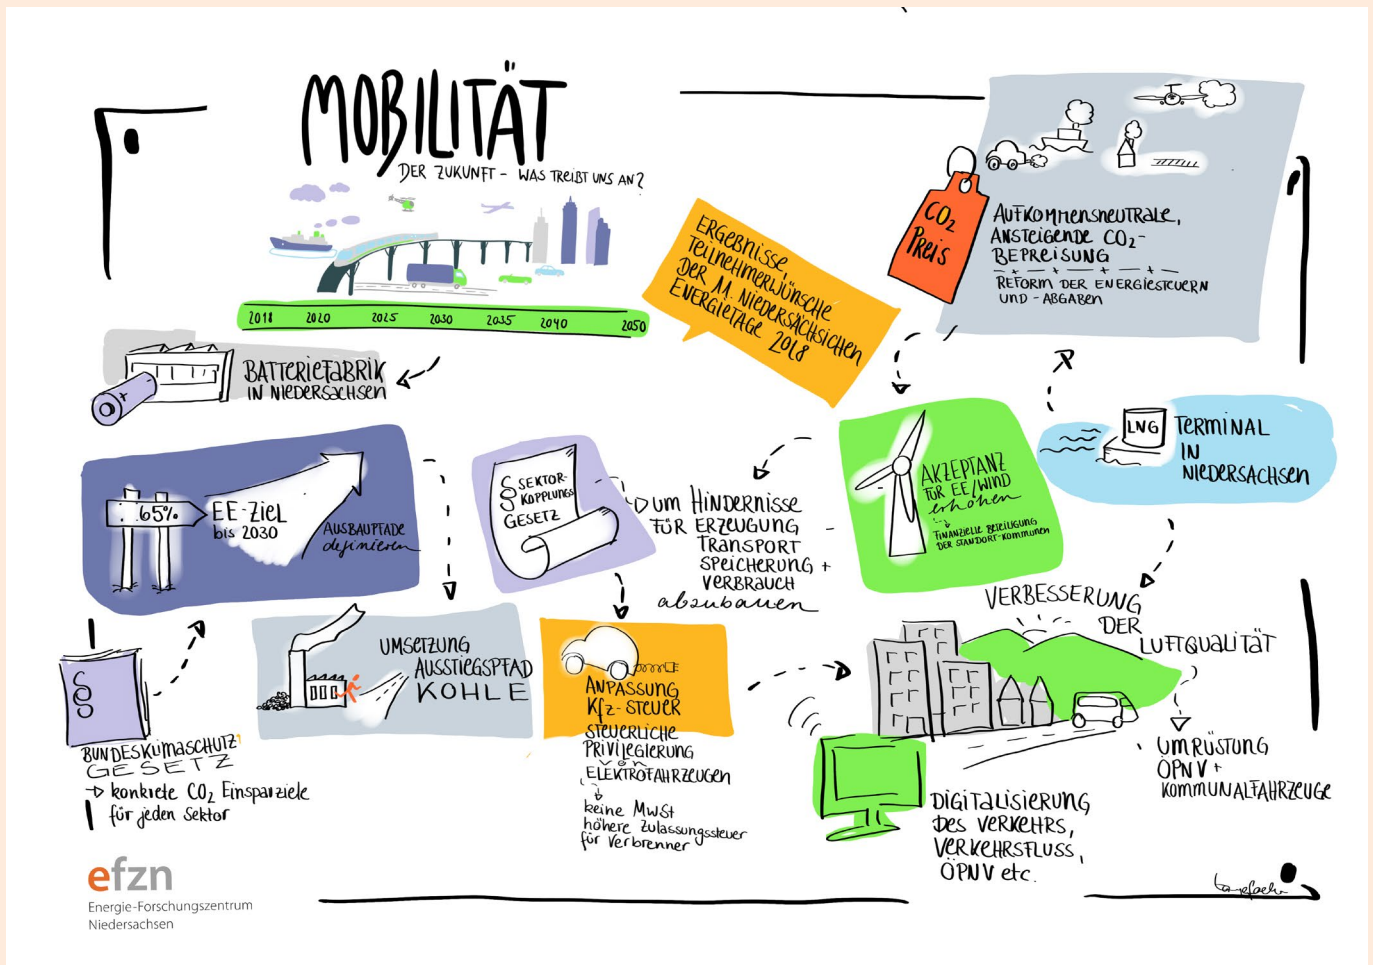 MOBILITÄT
DER ZUKUNFT - WAS TREIBT UNS AN?
2018 2020 2025 2030 2035 2040 2050
ERGEBNISSE
TEILNEHMERWÜNSCHE
DER 11. NIEDERSÄCHSICHEN
ENERGIETAGE 2018
CO2
PREIS
AUFKOMMENSNEUTRALE,
ANSTEIGENDE CO2-
BEPREISUNG
REFORM DER ENERGIESTEUERN
UND -ABGABEN
BATTERIEFABRIK
IN NIEDERSACHSEN
65%
EE-ZIEL
bis 2030
AUSBAUPFADE
definieren
§ SEKTOR-
§ KOPPLUNGS
GESETZ
UM HINDERNISSE
FÜR ERZEUGUNG
TRANSPORT
SPEICHERUNG +
VERBRAUCH
abzubauen
AKZEPTANZ
FÜR EE/WIND
erhöhen
FINANZIELLE BETEILIGUNG
DER STANDORT-KOMMUNEN
LNG
TERMINAL
IN
NIEDERSACHSEN
§
BUNDESKLIMASCHUTZ
GESETZ
konkrete CO2 Einsparziele
für jeden Sektor
UMSETZUNG
AUSSTIEGSPFAD
KOHLE
ANPASSUNG
Kfz-STEUER
STEUERLICHE
PRIVILEGIERUNG
VON
ELEKTROFAHRZEUGEN
keine MwSt
höhere Zulassungssteuer
für Verbrenner
VERBESSERUNG
DER
LUFTQUALITÄT
UMRÜSTUNG
ÖPNV +
KOMMUNALFAHRZEUGE
DIGITALISIERUNG
DES VERKEHRS,
VERKEHRSFLUSS,
ÖPNV etc.
efzn
Energie-Forschungszentrum
Niedersachsen